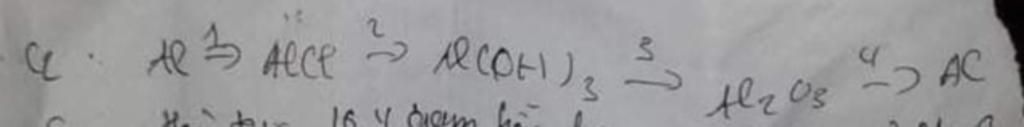 a. Al 1⇒ AlCl 2⇒ Al(OH)3 3→ Al2O3 4→ Al
16,4 gam hỗn